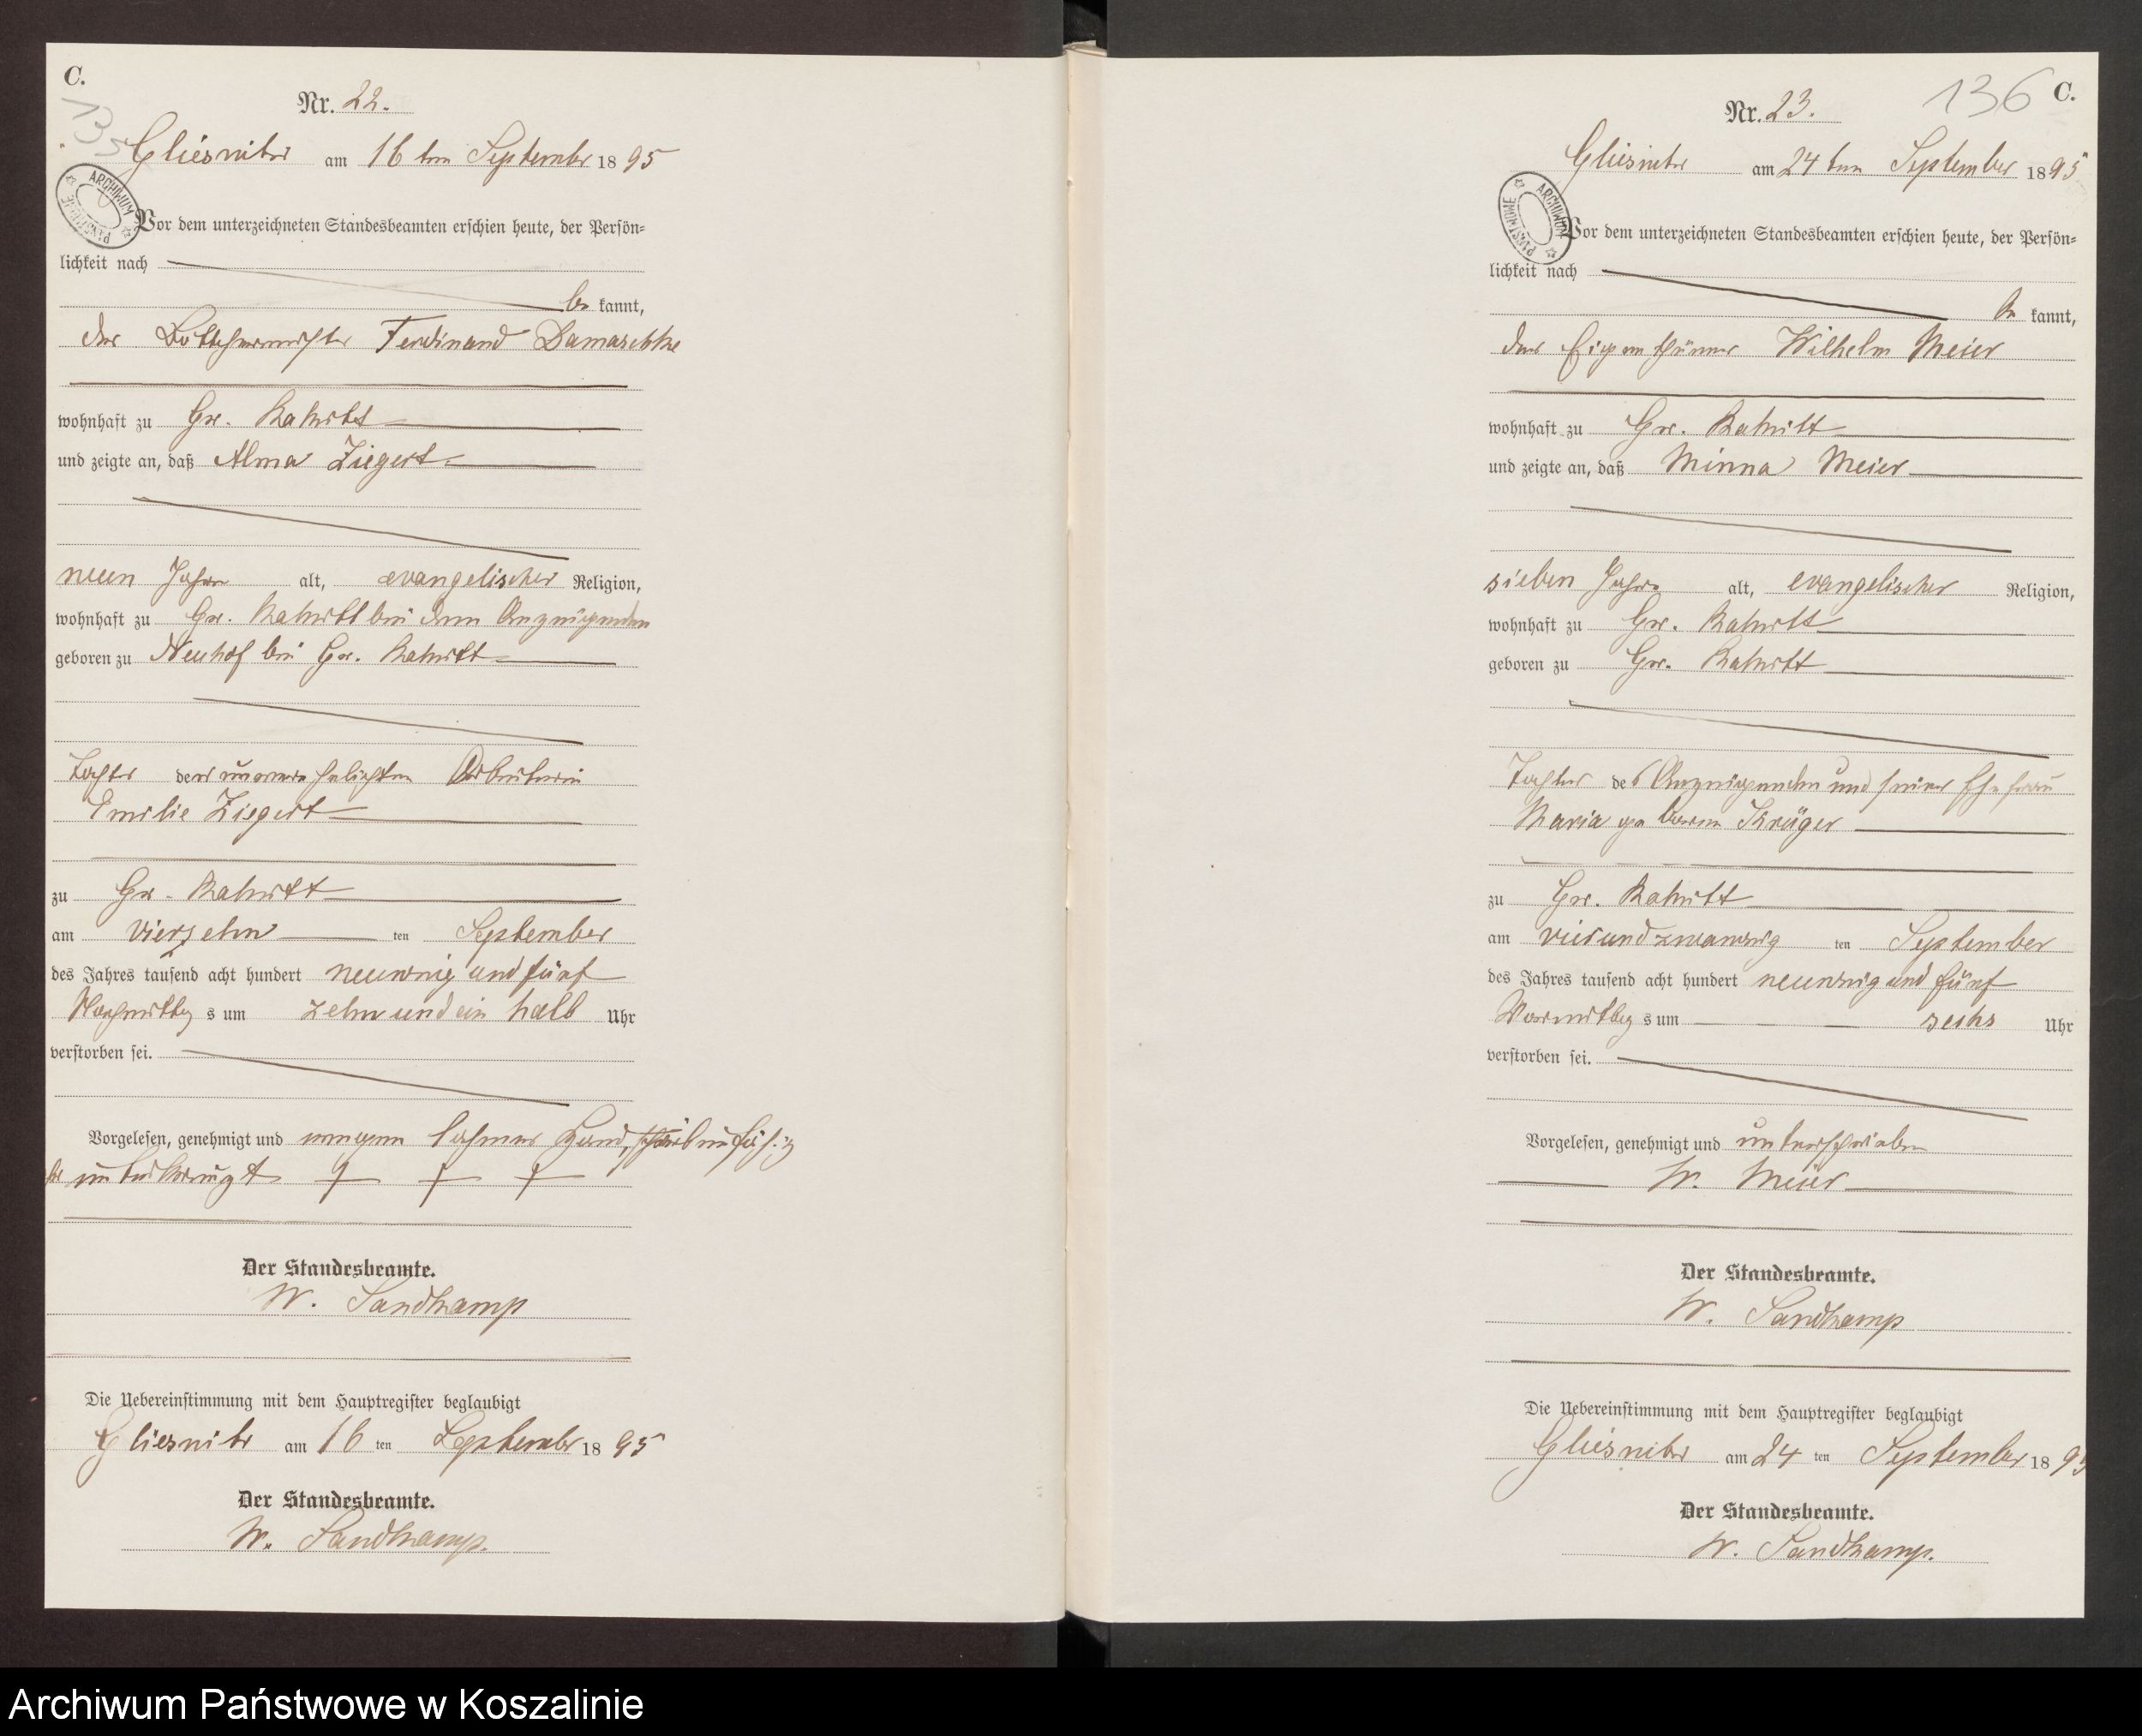 C.
135
Nr. 22.
Gliesnitz am 16 ten September 1895
ARCHIWUM PAŃSTWOWE
Vor dem unterzeichneten Standesbeamten erschien heute, der Persön-
lichkeit nach
be kannt,
der Böttchermeister Ferdinand Damaschke
wohnhaft zu Gr. Rakitt
und zeigte an, daß Alma Ziegert
neun Jahre alt, evangelischer Religion,
wohnhaft zu Gr. Rakitt bei dem Anzeigenden
geboren zu Neuhof bei Gr. Rakitt
Tochter der unverehelichten Arbeiterin
Emilie Ziegert
zu Gr. Rakitt
am vierzehn ten September
des Jahres tausend acht hundert neunzig und fünf
Nachmittag s um zehn und ein halb Uhr
verstorben sei.
Vorgelesen, genehmigt und wegen lahmer Hand, schreibunfähig
unterkreuzt † † †
Der Standesbeamte.
W. Sandkamp
Die Uebereinstimmung mit dem Hauptregister beglaubigt
Gliesnitz am 16 ten September 1895
Der Standesbeamte.
W. Sandkamp.
136 C.
Nr. 23.
Gliesnitz am 24 ten September 1895
ARCHIWUM PAŃSTWOWE
Vor dem unterzeichneten Standesbeamten erschien heute, der Persön-
lichkeit nach
be kannt,
der Eigenthümer Wilhelm Meier
wohnhaft zu Gr. Rakitt
und zeigte an, daß Minna Meier
sieben Jahre alt, evangelischer Religion,
wohnhaft zu Gr. Rakitt
geboren zu Gr. Rakitt
Tochter des Anzeigenden und seiner Ehefrau
Maria geborene Krüger
zu Gr. Rakitt
am vierundzwanzig ten September
des Jahres tausend acht hundert neunzig und fünf
Vormittag s um sechs Uhr
verstorben sei.
Vorgelesen, genehmigt und unterschrieben
W. Meier
Der Standesbeamte.
W. Sandkamp
Die Uebereinstimmung mit dem Hauptregister beglaubigt
Gliesnitz am 24 ten September 1895
Der Standesbeamte.
W. Sandkamp.
Archiwum Państwowe w Koszalinie